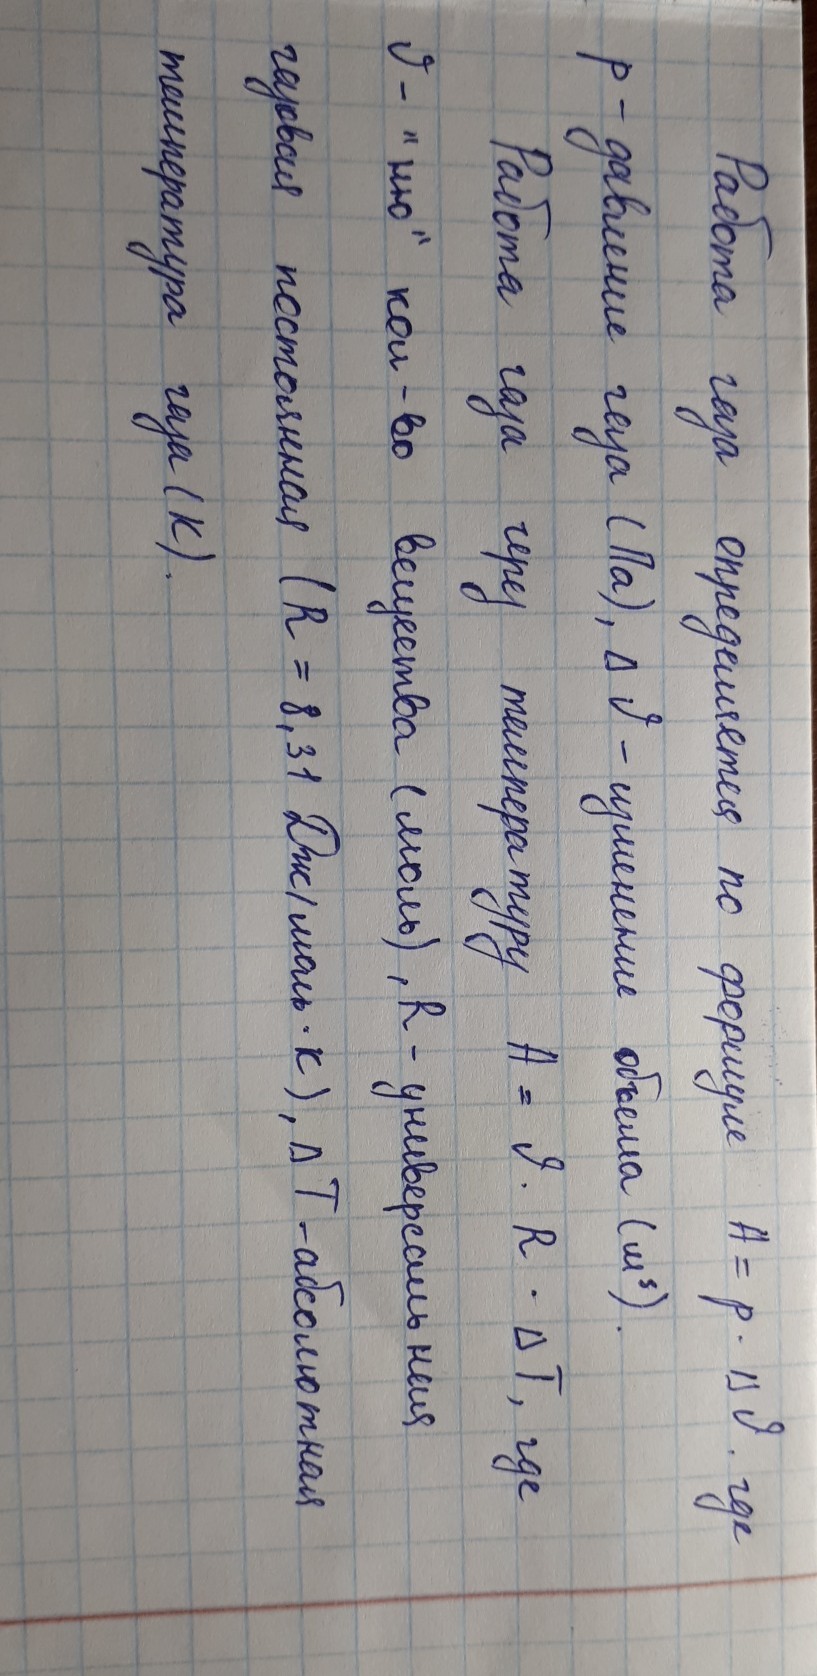 Работа газа определяется по формуле A = p · Δϑ. где
p – давление газа (Па), Δϑ – изменение объема (м³).
Работа газа через температуру A = ϑ · R · ΔT, где
ϑ – "ню" кол-во вещества (моль), R – универсальная
газовая постоянная (R = 8,31 Дж/моль·К), ΔT – абсолютная
температура газа (К).